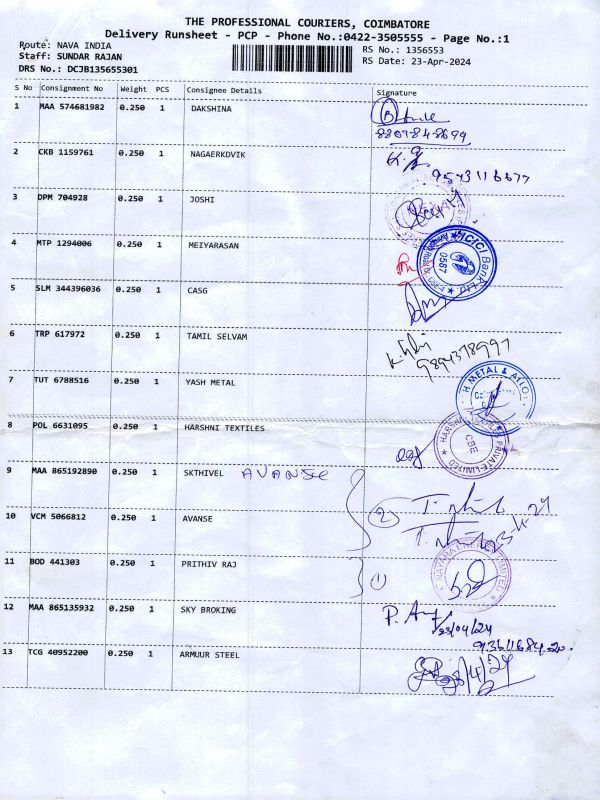 THE PROFESSIONAL COURIERS, COIMBATORE
Delivery Runsheet - PCP - Phone No.:0422-3505555 - Page No.:1
Route: NAVA INDIA
RS No.: 1356553
Staff: SUNDAR RAJAN
RS Date: 23-Apr-2024
DRS No.: DCJB135655301
S No Consignment No Weight PCS Consignee Details Signature
1 MAA 574681982 0.250 1 DAKSHINA
2 CKB 1159761 0.250 1 NAGAERKOVIK
9543116677
3 DPM 704928 0.250 1 JOSHI
4 MTP 1294006 0.250 1 MEIYARASAN
ICICI Bank Ltd
0587
5 SLM 344396036 0.250 1 CASG
6 TRP 617972 0.250 1 TAMIL SELVAM
9894378997
7 TUT 6788516 0.250 1 YASH METAL
H METAL & ALLO
8 POL 6631095 0.250 1 HARSHNI TEXTILES
PRIVATE LIMITED
CBE
9 MAA 865192890 0.250 1 SKTHIVEL AVANSE
10 VCM 5066812 0.250 1 AVANSE
2
11 BOD 441303 0.250 1 PRITHIV RAJ
1
LIMITED
12 MAA 865135932 0.250 1 SKY BROKING
23/04/24
13 TCG 40952200 0.250 1 ARMUUR STEEL